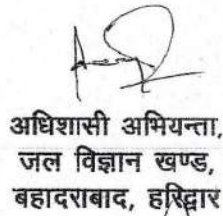 अधिशासी अभियन्ता,
जल विज्ञान खण्ड,
बहादराबाद, हरिद्वार